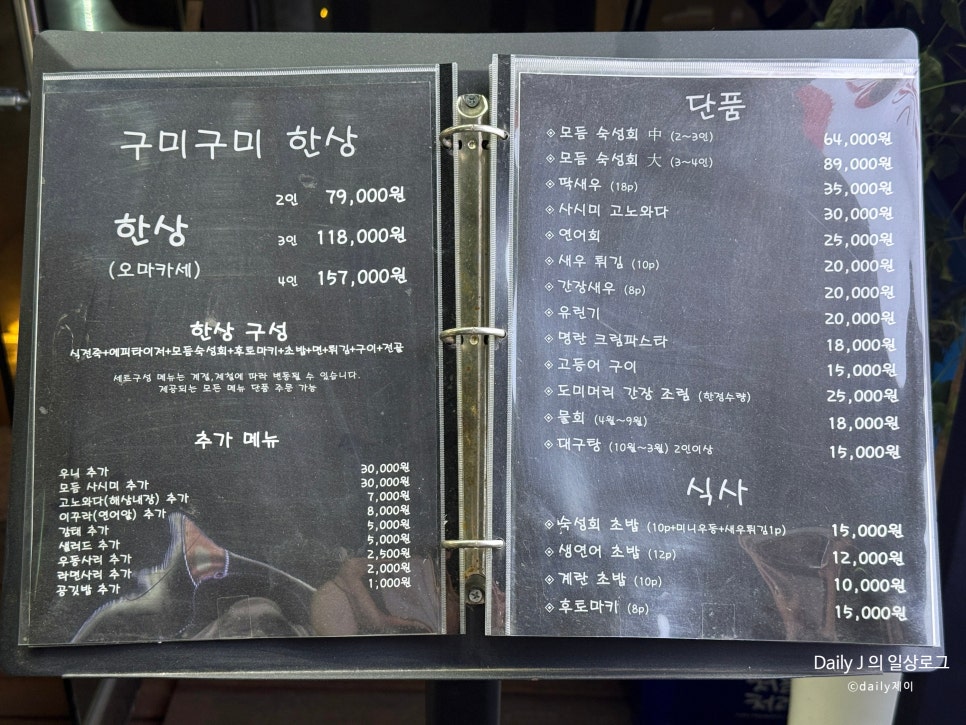 구미구미 한상
한상
(오마카세)
2인 79,000원
3인 118,000원
4인 157,000원
한상 구성
식전죽+에피타이저+모듬숙성회+후토마키+초밥+면+튀김+구이+전골
세트구성 메뉴는 계절,계철에 따라 변동될 수 있습니다.
제공되는 모든 메뉴 단품 주문 가능
추가 메뉴
우니 추가 30,000원
모듬 사시미 추가 30,000원
고노와다(해삼내장) 추가 7,000원
이꾸라(연어알) 추가 8,000원
감태 추가 5,000원
샐러드 추가 5,000원
우동사리 추가 2,500원
라면사리 추가 2,000원
공깃밥 추가 1,000원
단품
◈ 모듬 숙성회 中 (2~3인) 64,000원
◈ 모듬 숙성회 大 (3~4인) 89,000원
◈ 딱새우 (18p) 35,000원
◈ 사시미 고노와다 30,000원
◈ 연어회 25,000원
◈ 새우 튀김 (10p) 20,000원
◈ 간장새우 (8p) 20,000원
◈ 유린기 20,000원
◈ 명란 크림파스타 18,000원
◈ 고등어 구이 15,000원
◈ 도미머리 간장 조림 (한정수량) 25,000원
◈ 물회 (4월~9월) 18,000원
◈ 대구탕 (10월~3월) 2인이상 15,000원
식사
◈ 숙성회 초밥 (10p+미니우동+새우튀김1p) 15,000원
◈ 생연어 초밥 (12p) 12,000원
◈ 계란 초밥 (10p) 10,000원
◈ 후토마키 (8p) 15,000원
Daily J 의 일상로그
©daily제이